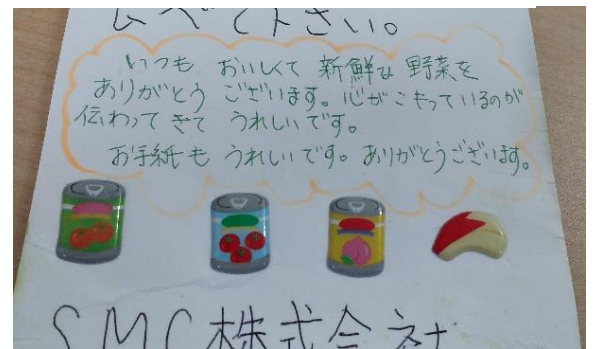 べて下さい。
いつも おいしくて 新鮮な 野菜を
ありがとう ございます。心がこもっているのが
伝わってきて うれしいです。
お手紙も うれしいです。ありがとうございます。
SMC株式会社